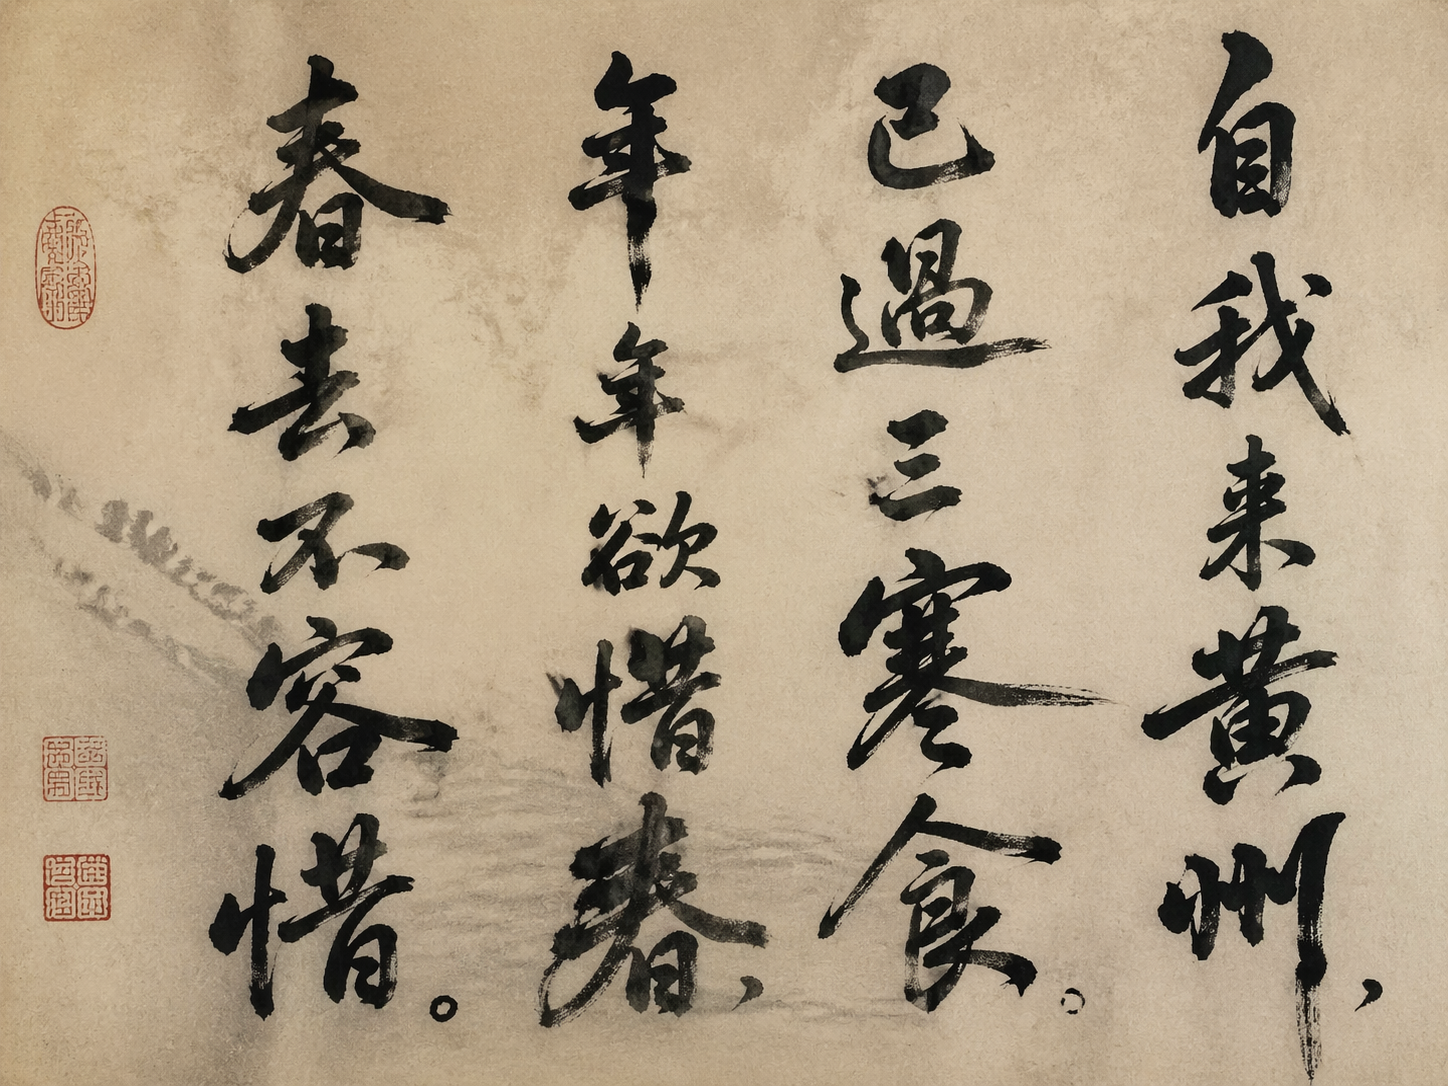 自我来黄州，
已過三寒食。
年年欲惜春，
春去不容惜。